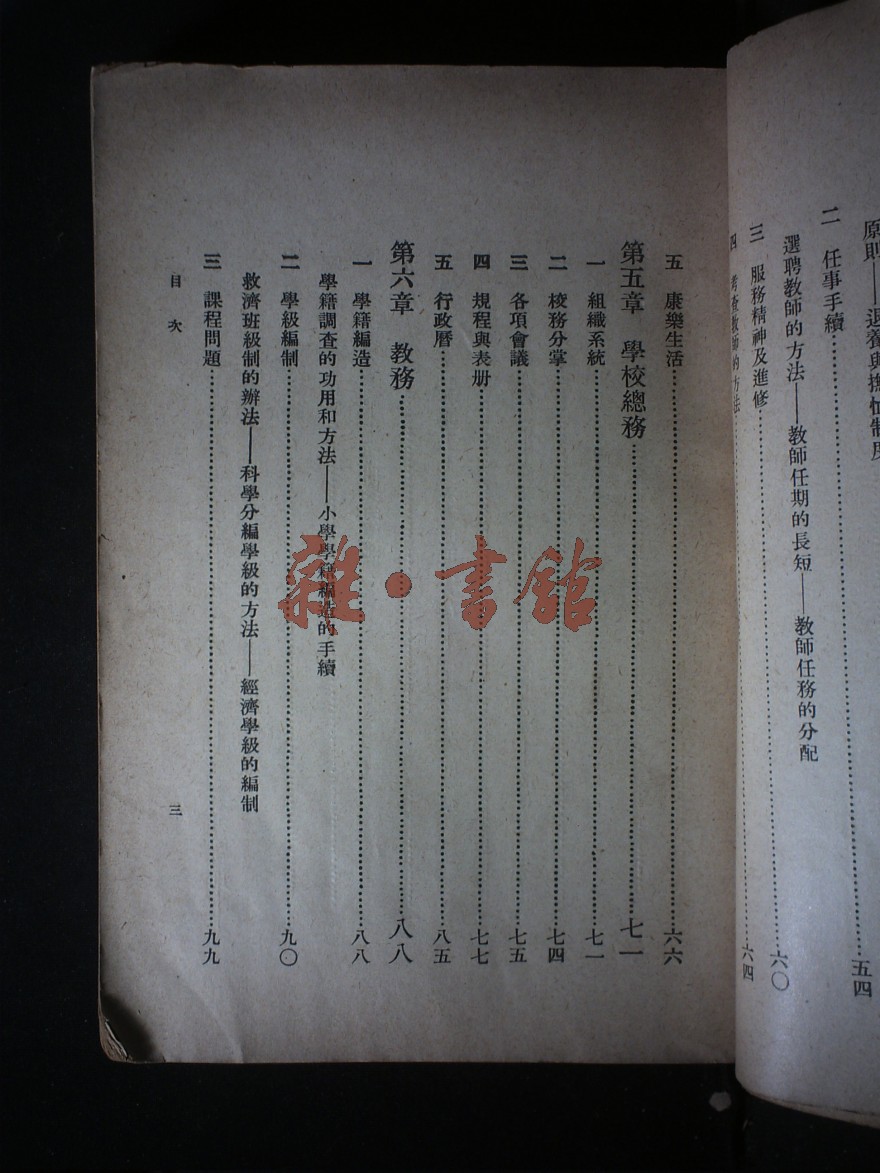 原則——退養與撫恤制度……五四
二 任事手續……六〇
選聘教師的方法——教師任期的長短——教師任務的分配
三 服務精神及進修……六四
四 考查教師的方法……
五 康樂生活……六六
第五章 學校總務……七一
一 組織系統……七一
二 校務分掌……七四
三 各項會議……七五
四 規程與表册……七七
五 行政曆……八五
第六章 教務……八八
一 學籍編造……八八
學籍調查的功用和方法——小學學籍編造的手續
二 學級編制……九〇
救濟班級制的辦法——科學分編學級的方法——經濟學級的編制
三 課程問題……九九
目次
三
雜·書館